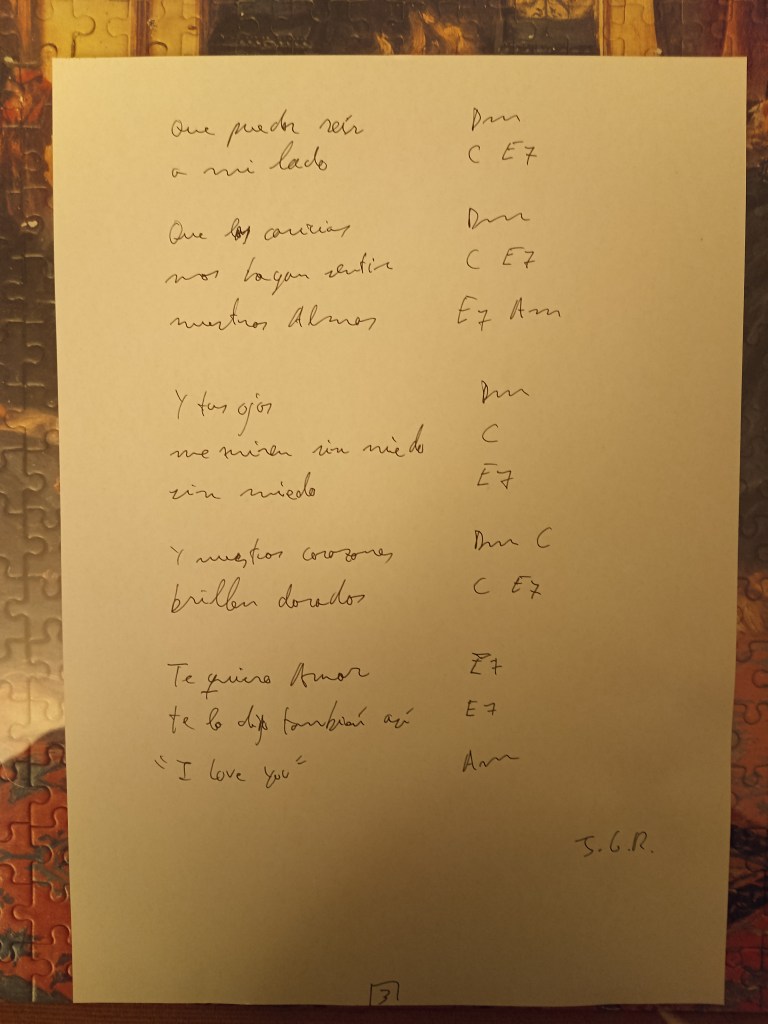 Que puedas reír Dm
a mi lado C E7
Que las caricias Dm
nos hagan sentir C E7
nuestras Almas E7 Am
Y tus ojos Dm
me miren sin miedo C
sin miedo E7
Y nuestros corazones Dm C
brillen dorados C E7
Te quiero Amor E7
te lo digo también así E7
"I love you" Am
J.G.R.
3